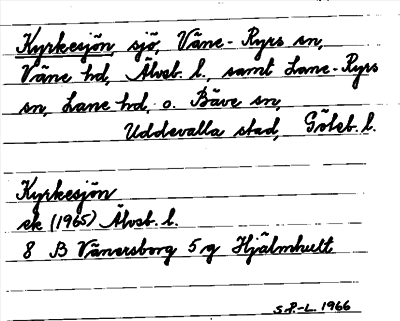 Kyrkesjön, sjö, Väne-Ryrs sn,
Väne hd, Älvsb. l., samt Lane-Ryrs
sn, Lane hd, o. Bäve sn,
Uddevalla stad, Göteb. l.
Kyrkesjön
ek (1965) Älvsb. l.
8 B Vänersborg 5 g Hjälmhult
S.P.-L. 1966